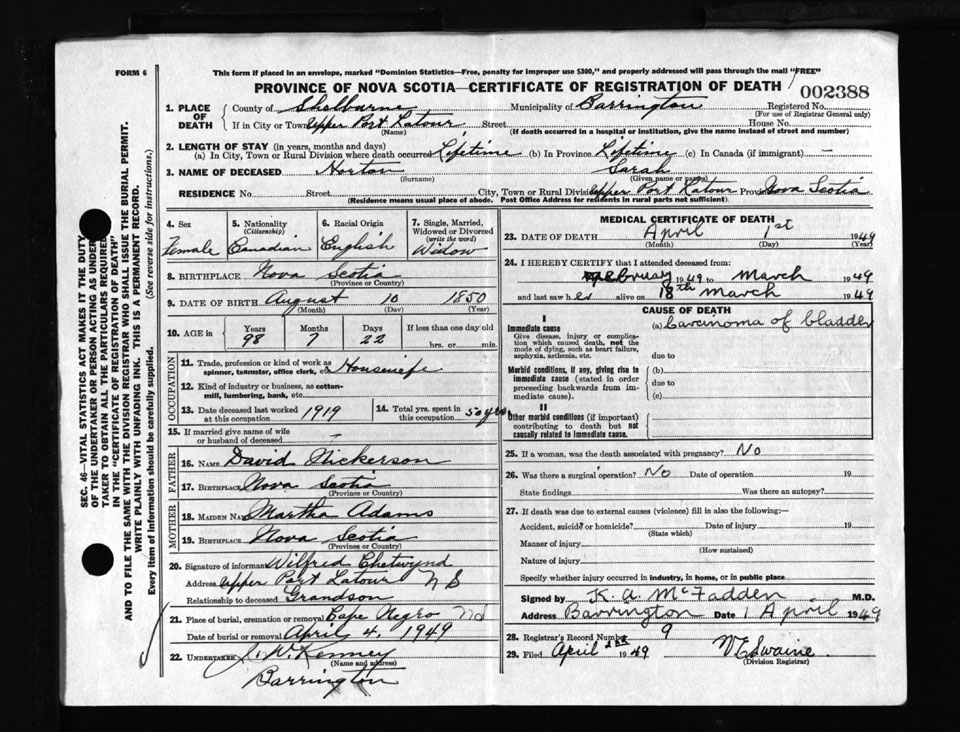 FORM 6
This form if placed in an envelope, marked "Dominion Statistics—Free, penalty for improper use $300," and properly addressed will pass through the mail "FREE"
PROVINCE OF NOVA SCOTIA—CERTIFICATE OF REGISTRATION OF DEATH
002388
1. PLACE OF DEATH
County of Shelburne Municipality of Barrington Registered No.
(For use of Registrar General only)
If in City or Town Upper Port Latour Street House No.
(Name) (If death occurred in a hospital or institution, give the name instead of street and number)
2. LENGTH OF STAY (in years, months and days)
(a) In City, Town or Rural Division where death occurred Lifetime (b) In Province Lifetime (c) In Canada (if immigrant) —
3. NAME OF DECEASED Horton Sarah
(Surname) (Given name or names)
RESIDENCE No. Street City, Town or Rural Division Upper Port Latour Province Nova Scotia
(Residence means usual place of abode. Post Office Address for residents in rural parts not sufficient).
4. Sex
Female
5. Nationality
(Citizenship)
Canadian
6. Racial Origin
English
7. Single, Married, Widowed or Divorced
(write the word)
Widow
8. BIRTHPLACE Nova Scotia
(Province or Country)
9. DATE OF BIRTH August 10 1850
(Month) (Day) (Year)
10. AGE in
Years Months Days If less than one day old
98 7 22 hrs. or min.
OCCUPATION
11. Trade, profession or kind of work as
spinner, teamster, office clerk, etc. Housewife
12. Kind of industry or business, as cotton-
mill, lumbering, bank, etc.
13. Date deceased last worked
at this occupation 1919
14. Total yrs. spent in
this occupation 50 yrs
15. If married give name of wife
or husband of deceased —
FATHER
16. NAME David Nickerson
17. Birthplace Nova Scotia
(Province or Country)
MOTHER
18. MAIDEN NAME Martha Adams
19. BIRTHPLACE Nova Scotia
(Province or Country)
20. Signature of informant Wilfred Chetwynd
Address Upper Port Latour N S
Relationship to deceased Grandson
21. Place of burial, cremation or removal Cape Negro
Date of burial or removal April 4, 1949
22. UNDERTAKER J. W. Kenney
(Name and address)
Barrington
MEDICAL CERTIFICATE OF DEATH
23. DATE OF DEATH April 1st 1949
(Month) (Day) (Year)
24. I HEREBY CERTIFY that I attended deceased from:
February 1949 to March 1949
and last saw her alive on 18th March 1949
CAUSE OF DEATH
I
Immediate cause
Give disease, injury or complication which caused death, not the mode of dying, such as heart failure, asphyxia, asthenia, etc.
(a) Carcinoma of bladder
due to
Morbid conditions, if any, giving rise to immediate cause (stated in order proceeding backwards from immediate cause).
(b)
due to
(c)
II
Other morbid conditions (if important) contributing to death but not causally related to immediate cause.
25. If a woman, was the death associated with pregnancy? No
26. Was there a surgical operation? No Date of operation 19
State findings Was there an autopsy?
27. If death was due to external causes (violence) fill in also the following:—
Accident, suicide or homicide? Date of injury 19
(State which)
Manner of injury
(How sustained)
Nature of injury
Specify whether injury occurred in industry, in home, or in public place
Signed by K. A. McFadden M.D.
Address Barrington Date 1 April 1949
28. Registrar's Record Number 9
29. Filed April 2nd 1949
Swaine
(Division Registrar)
SEC. 46—VITAL STATISTICS ACT MAKES IT THE DUTY
OF THE UNDERTAKER OR PERSON ACTING AS UNDER-
TAKER TO OBTAIN ALL THE PARTICULARS REQUIRED
IN THE "CERTIFICATE OF REGISTRATION OF DEATH"
AND TO FILE THE SAME WITH THE DIVISION REGISTRAR WHO SHALL ISSUE THE BURIAL PERMIT.
WRITE PLAINLY WITH UNFADING INK. THIS IS A PERMANENT RECORD.
Every item of information should be carefully supplied. (See reverse side for instructions.)